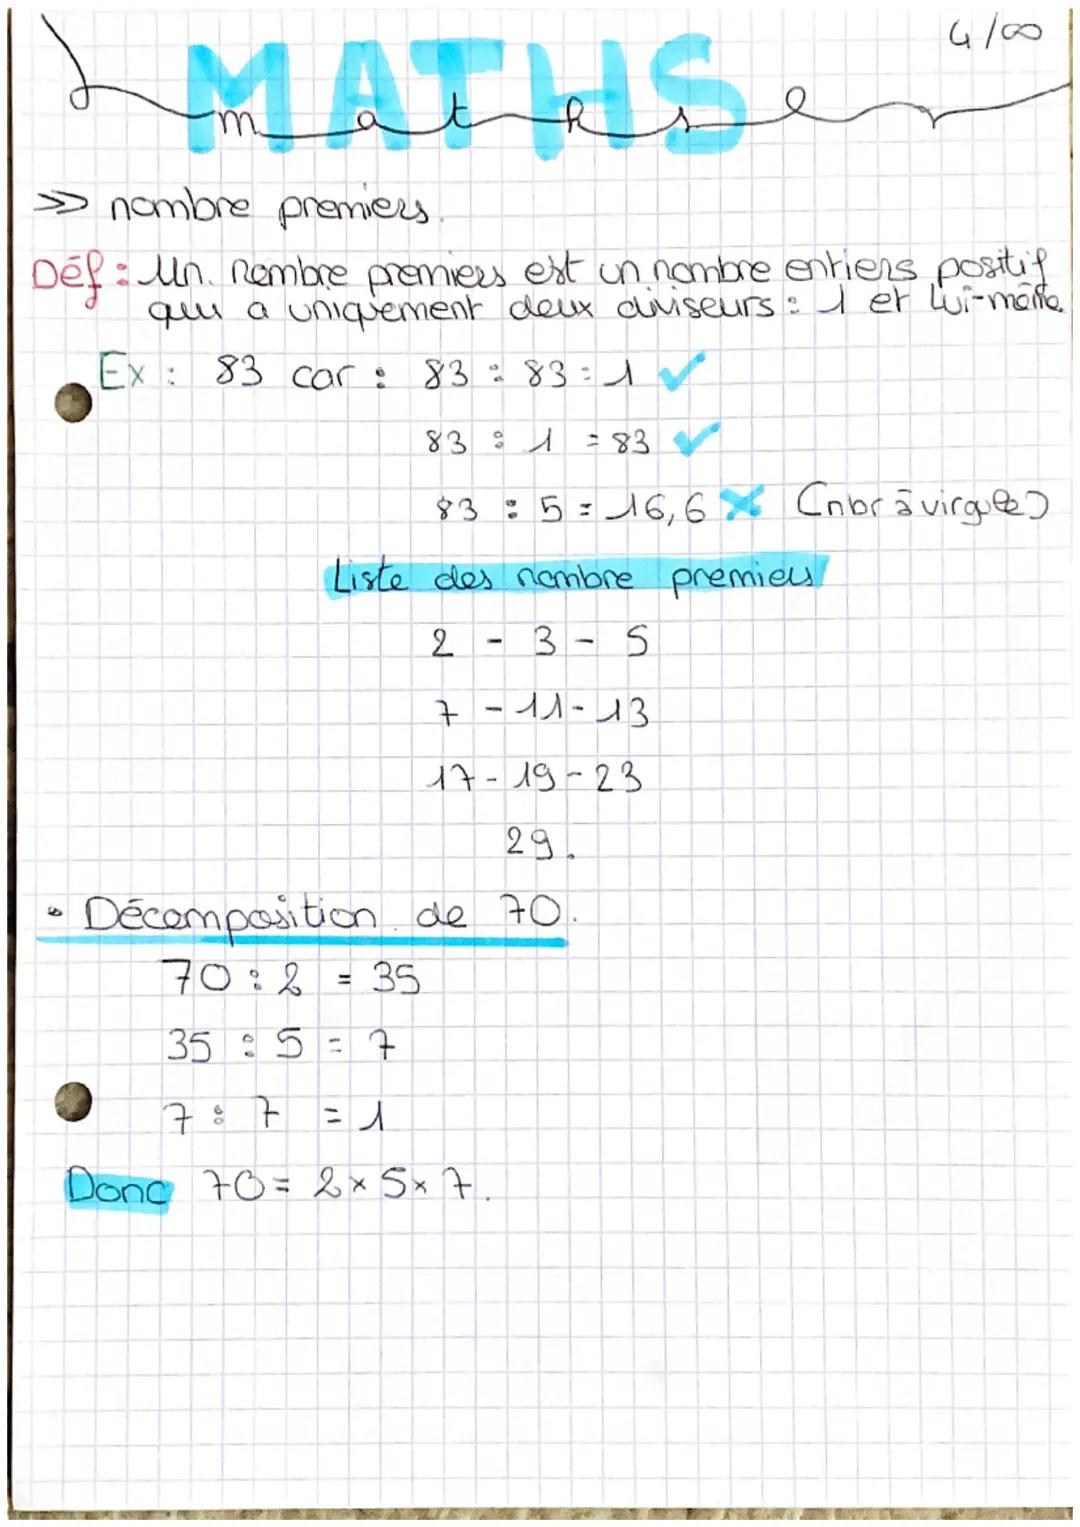 4/∞
MATHS
maths
>> nombre premiers.
Déf : Un nombre premiers est un nombre entiers positif
qui a uniquement deux diviseurs : 1 et lui-même.
Ex : 83 car : 83 : 83 = 1 ✓
83 : 1 = 83 ✓
83 : 5 = 16,6 ✗ (nbr à virgule)
Liste des nombre premiers
2 - 3 - 5
7 - 11 - 13
17 - 19 - 23
29.
• Décomposition de 70.
70 : 2 = 35
35 : 5 = 7
7 : 7 = 1
Donc 70 = 2 × 5 × 7.